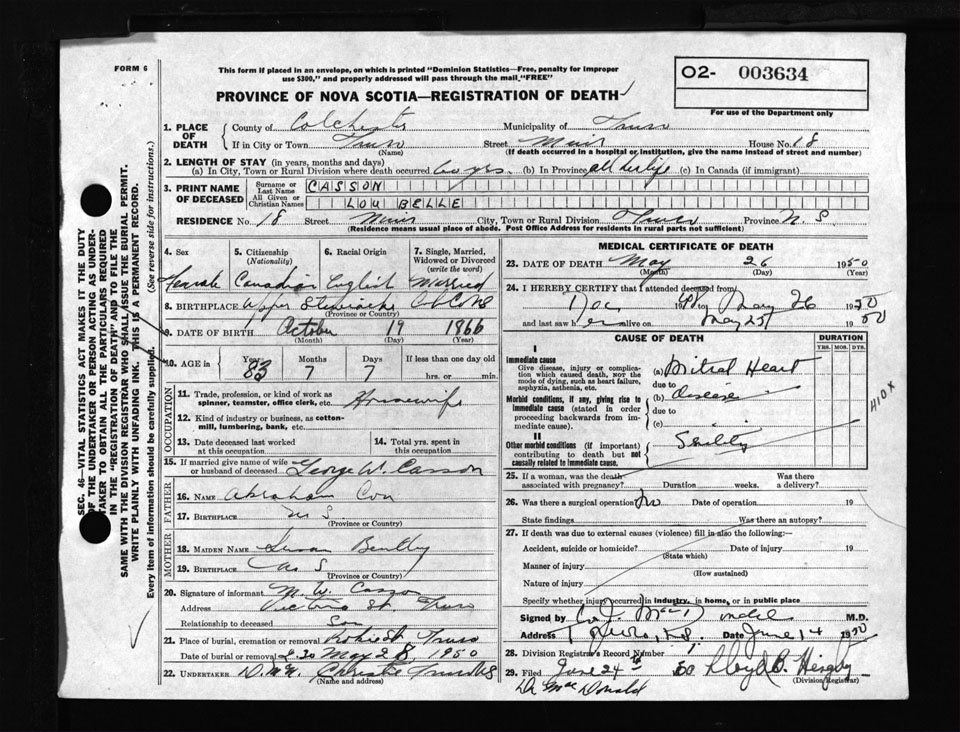 FORM 6
This form if placed in an envelope, on which is printed "Dominion Statistics—Free, penalty for improper
use $300," and properly addressed will pass through the mail "FREE"
O2- 003634
For use of the Department only
PROVINCE OF NOVA SCOTIA—REGISTRATION OF DEATH
1. PLACE OF DEATH
County of Colchester Municipality of Truro
If in City or Town Truro Street Muir House No. 18
(Name) (If death occurred in a hospital or institution, give the name instead of street and number)
2. LENGTH OF STAY (in years, months and days)
(a) In City, Town or Rural Division where death occurred 60 yrs. (b) In Province all her life (c) In Canada (if immigrant)
3. PRINT NAME OF DECEASED
Surname or Last Name CASSON
All Given or Christian Names LOU BELLE
RESIDENCE No. 18 Street Muir City, Town or Rural Division Truro Province N. S
(Residence means usual place of abode. Post Office Address for residents in rural parts not sufficient)
4. Sex 5. Citizenship (Nationality) 6. Racial Origin 7. Single, Married, Widowed or Divorced (write the word)
Female Canadian English Married
8. BIRTHPLACE Upper Stewiacke Col Co NS
(Province or Country)
9. DATE OF BIRTH October 19 1866
(Month) (Day) (Year)
10. AGE in Years Months Days If less than one day old
83 7 7 hrs. or min.
OCCUPATION
11. Trade, profession, or kind of work as spinner, teamster, office clerk, etc. Housewife
12. Kind of industry or business, as cotton-mill, lumbering, bank, etc.
13. Date deceased last worked at this occupation
14. Total yrs. spent in this occupation
15. If married give name of wife or husband of deceased George W. Casson
FATHER
16. NAME Abraham Cox
17. BIRTHPLACE N S
(Province or Country)
MOTHER
18. MAIDEN NAME Susan Bently
19. BIRTHPLACE N S
(Province or Country)
20. Signature of informant M. W. Casson
Address Victoria St. Truro
Relationship to deceased Son
21. Place of burial, cremation or removal Truro
Date of burial or removal 2.30 May 28, 1950
22. UNDERTAKER Christie Truro NS
(Name and address)
MEDICAL CERTIFICATE OF DEATH
23. DATE OF DEATH May 26 1950
(Month) (Day) (Year)
24. I HEREBY CERTIFY that I attended deceased from
Dec 48 to May 26 1950
and last saw her alive on May 25 1950
CAUSE OF DEATH
DURATION
YRS. MOS. DYS.
I
Immediate cause
Give disease, injury or complication which caused death, NOT the mode of dying, such as heart failure, asphyxia, asthenia, etc.
(a) Mitral Heart
due to
Morbid conditions, if any, giving rise to immediate cause (stated in order proceeding backwards from immediate cause).
(b) Disease
due to
(c)
II
Other morbid conditions (if important) contributing to death but not causally related to immediate cause.
Senility
410 x
25. If a woman, was the death associated with pregnancy? Duration weeks. Was there a delivery?
26. Was there a surgical operation? No Date of operation 19
State findings Was there an autopsy?
27. If death was due to external causes (violence) fill in also the following:—
Accident, suicide or homicide? Date of injury 19
(State which)
Manner of injury
(How sustained)
Nature of injury
Specify whether injury occurred in industry, in home, or in public place
Signed by M.D.
Address Truro, N.S. Date June 14 1950
28. Division Registrar's Record Number
29. Filed June 24th 50 Lloyd B.
(Division Registrar)
Dr MacDonald
SEC. 46—VITAL STATISTICS ACT MAKES IT THE DUTY
OF THE UNDERTAKER OR PERSON ACTING AS UNDERTAKER
TO OBTAIN ALL THE PARTICULARS REQUIRED
IN THE "REGISTRATION OF DEATH" AND TO FILE THE
SAME WITH THE DIVISION REGISTRAR WHO SHALL ISSUE THE BURIAL PERMIT.
WRITE PLAINLY WITH UNFADING INK. THIS IS A PERMANENT RECORD.
Every item of information should be carefully supplied. (See reverse side for instructions.)